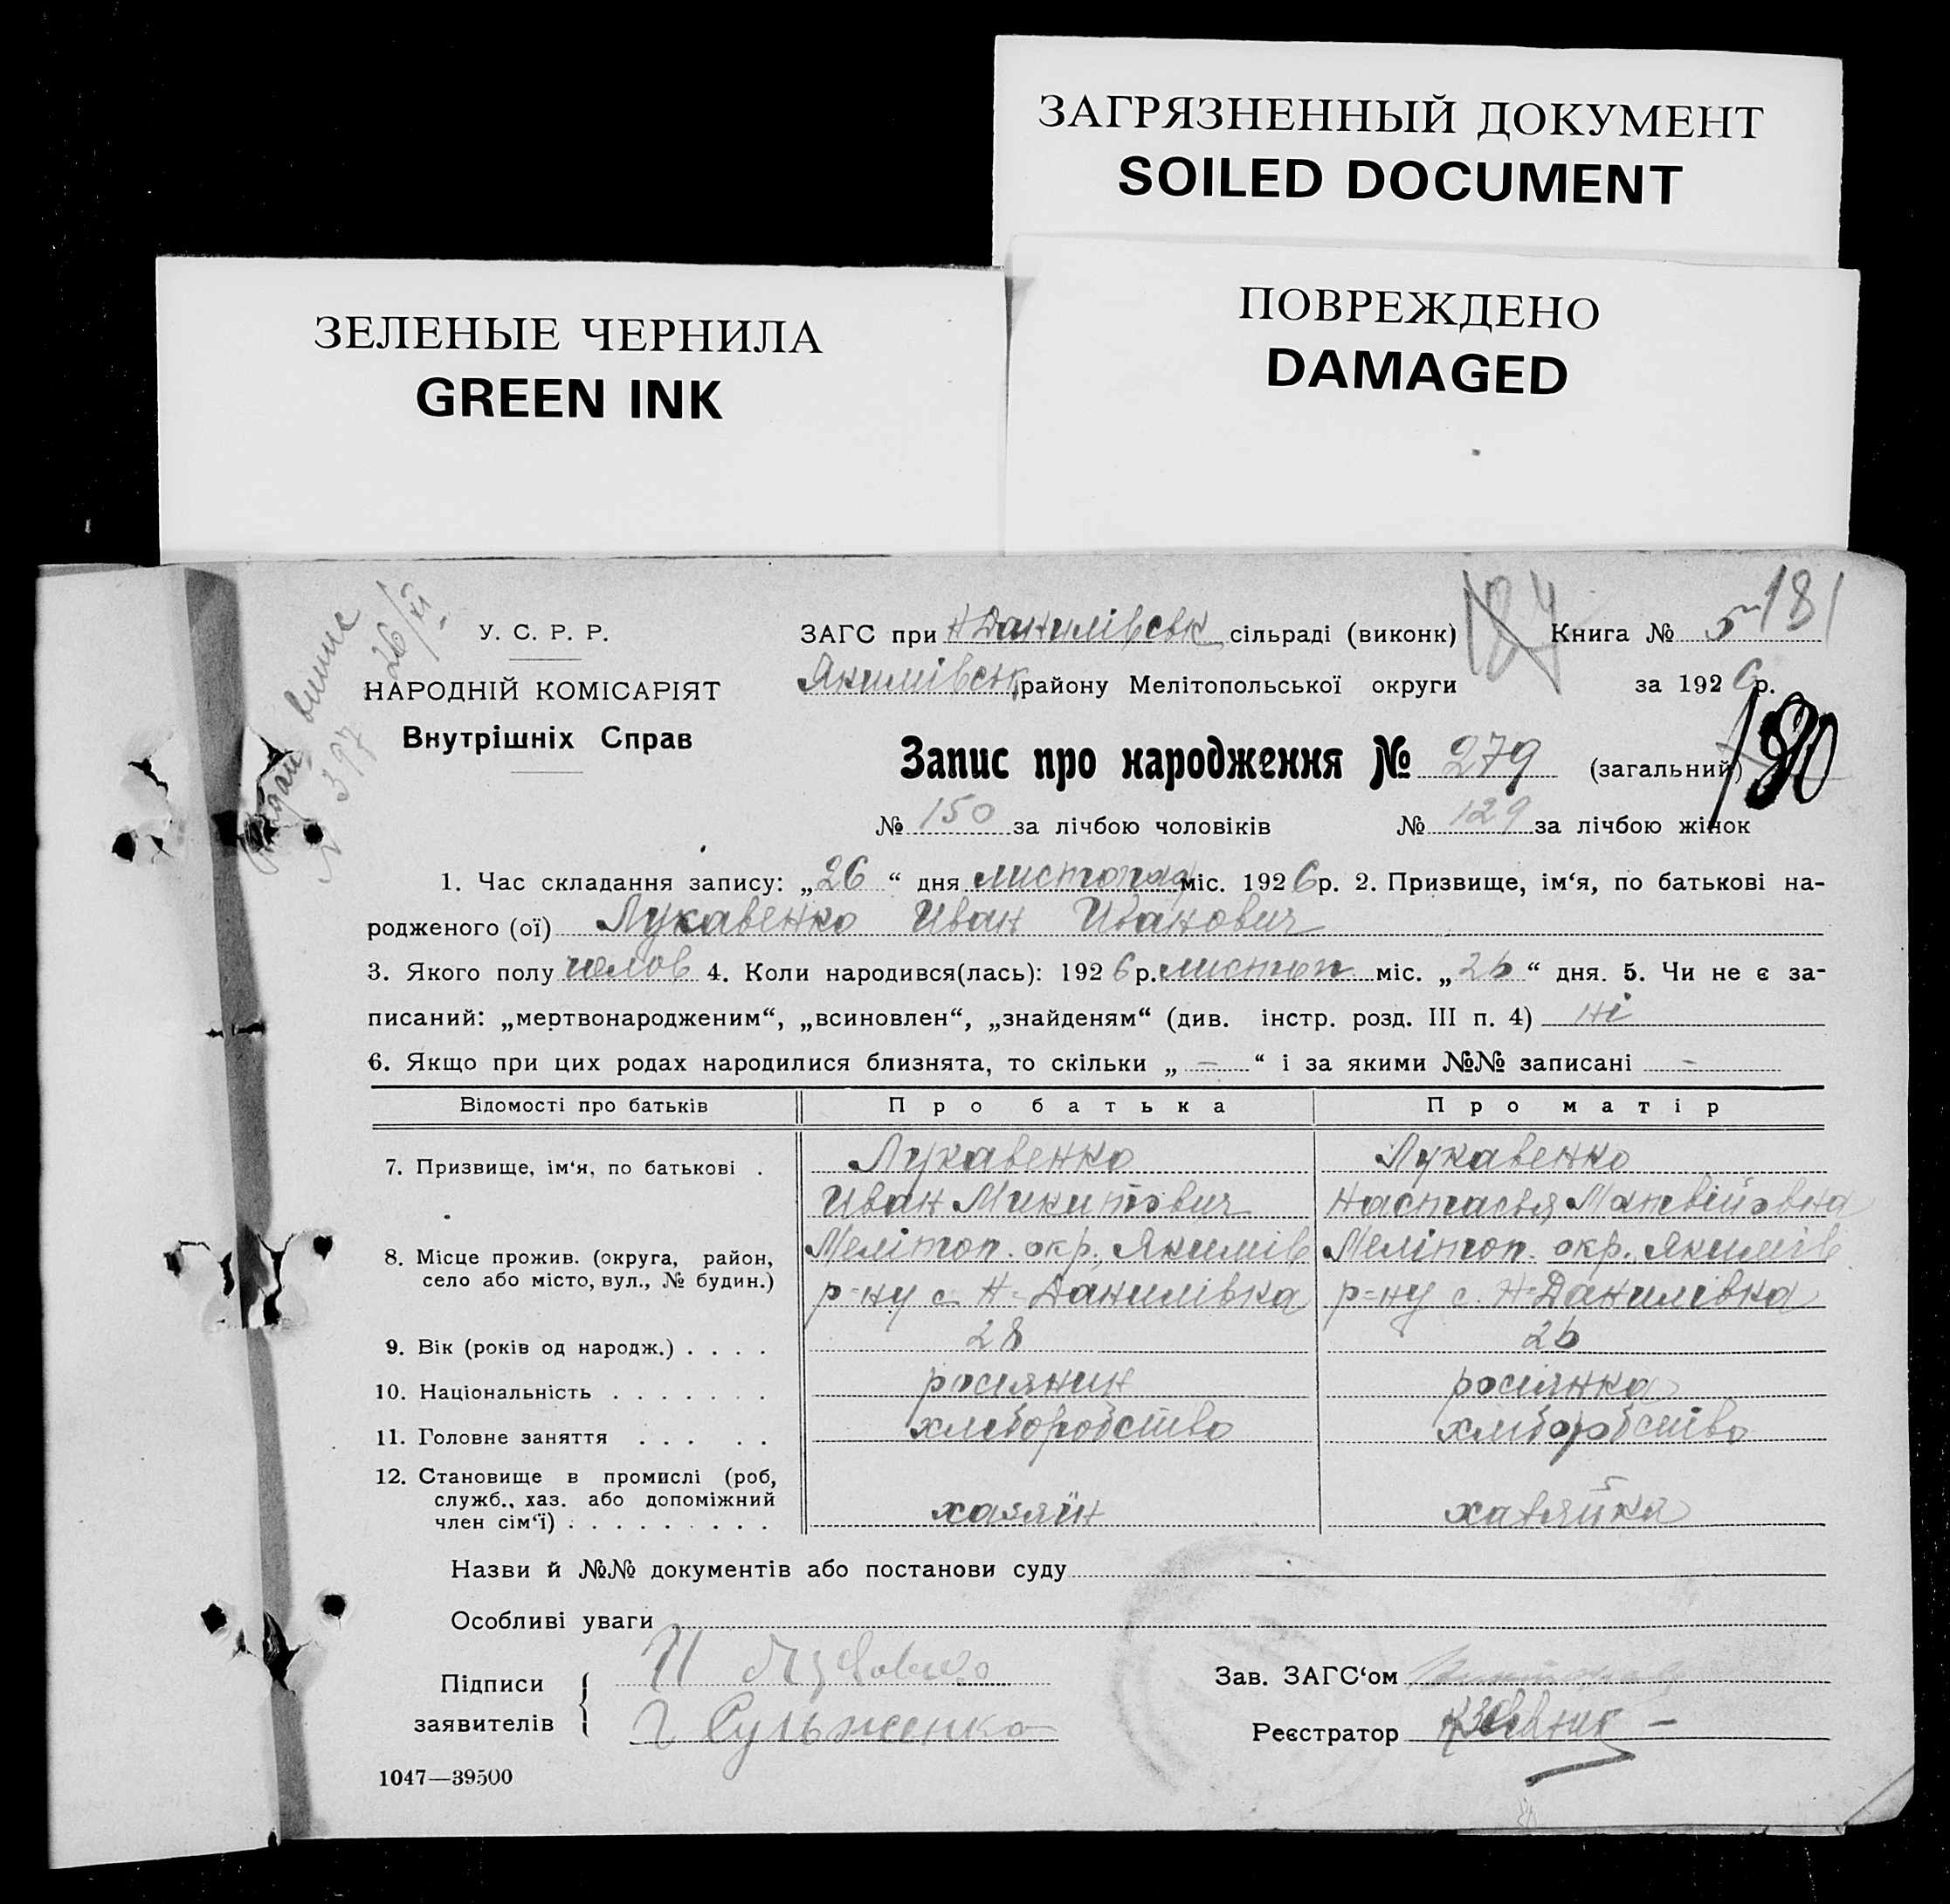 ЗАГРЯЗНЕННЫЙ ДОКУМЕНТ
SOILED DOCUMENT
ЗЕЛЕНЫЕ ЧЕРНИЛА
GREEN INK
ПОВРЕЖДЕНО
DAMAGED
26/XI
N 397
У. С. Р. Р.
НАРОДНІЙ КОМІСАРІЯТ
Внутрішніх Справ
ЗАГС при Н Данилівськ сільраді (виконк) 184 Книга № 5 181
Якимівськ району Мелітопольської округи за 1926 р.
180
Запис про народження № 279 (загальний)
№ 150 за лічбою чоловіків № 129 за лічбою жінок
1. Час складання запису: „26“ дня листопад міс. 1926 р. 2. Призвище, ім‘я, по батькові на-
родженого (ої) Лукавенко Иван Иванович
3. Якого полу чолов 4. Коли народився(лась): 1926 р. листоп міс. „26“ дня. 5. Чи не є за-
писаний: „мертвонародженим“, „всиновлен“, „знайденям“ (див. інстр. розд. III п. 4) ні
6. Якщо при цих родах народилися близнята, то скільки „ – “ і за якими №№ записані –
Відомості про батьків Про батька Про матір
7. Призвище, ім‘я, по батькові . Лукавенко Лукавенко
Иван Микитович Настасья Матвійовна
8. Місце прожив. (округа, район, Меліто​п. окр., Якимів Мелітоп. окр., Якимів
село або місто, вул., № будин.) р=ну с. Н=Данилівка р=ну с. Н=Данилівка
9. Вік (років од народж.) . . . . 28 26
10. Національність . . . . . . . росіянин росіянка
11. Головне заняття . . . . . хліборобство хліборобство
12. Становище в промислі (роб,
служб., хаз. або допоміжний
член сім‘ї) . . . . . . . . . хазяїн хазяйка
Назви й №№ документів або постанови суду
Особливі уваги
Підписи
заявителів
Зав. ЗАГС‘ом
Реєстратор
1047—39500